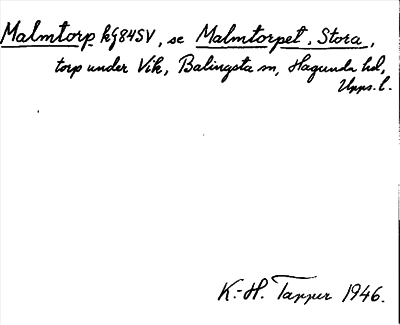 Malmtorp kg84SV, se Malmtorpet, Stora,
torp under Vik, Balingsta sn, Hagunda hd,
Upps. l.
K.-H. Tapper 1946.